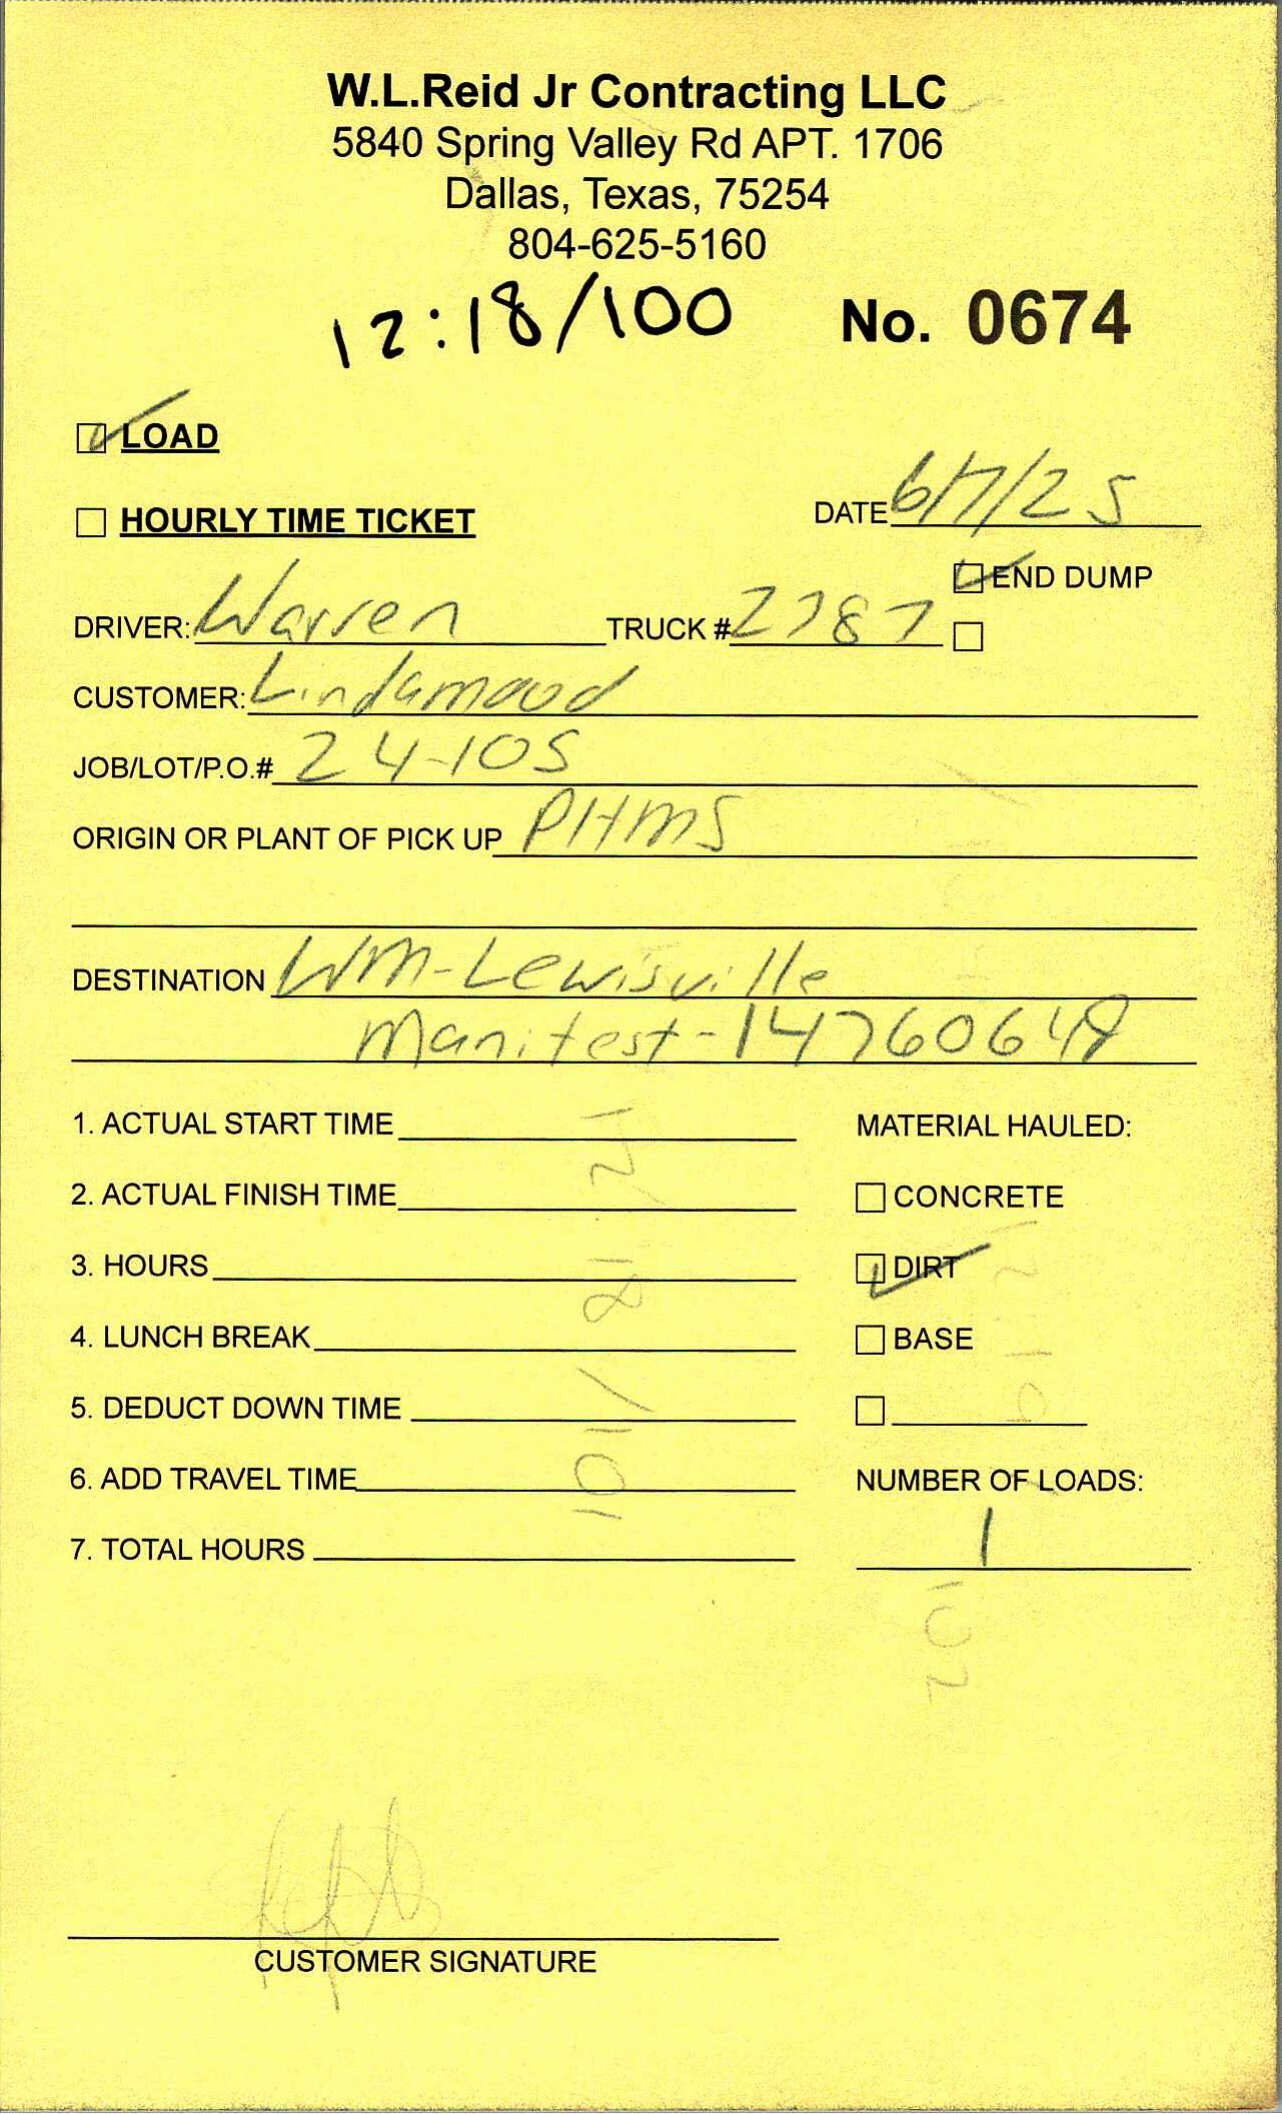 W.L.Reid Jr Contracting LLC
5840 Spring Valley Rd APT. 1706
Dallas, Texas, 75254
804-625-5160
12:18/100 No. 0674
LOAD
HOURLY TIME TICKET DATE 6/7/25
END DUMP
DRIVER: Warren TRUCK # 2787
CUSTOMER: Lindamood
JOB/LOT/P.O.# 24-105
ORIGIN OR PLANT OF PICK UP PHMS
DESTINATION WM-Lewisville
Manifest-14760648
1. ACTUAL START TIME MATERIAL HAULED:
2. ACTUAL FINISH TIME CONCRETE
3. HOURS DIRT
4. LUNCH BREAK BASE
5. DEDUCT DOWN TIME
6. ADD TRAVEL TIME NUMBER OF LOADS:
7. TOTAL HOURS 1
CUSTOMER SIGNATURE